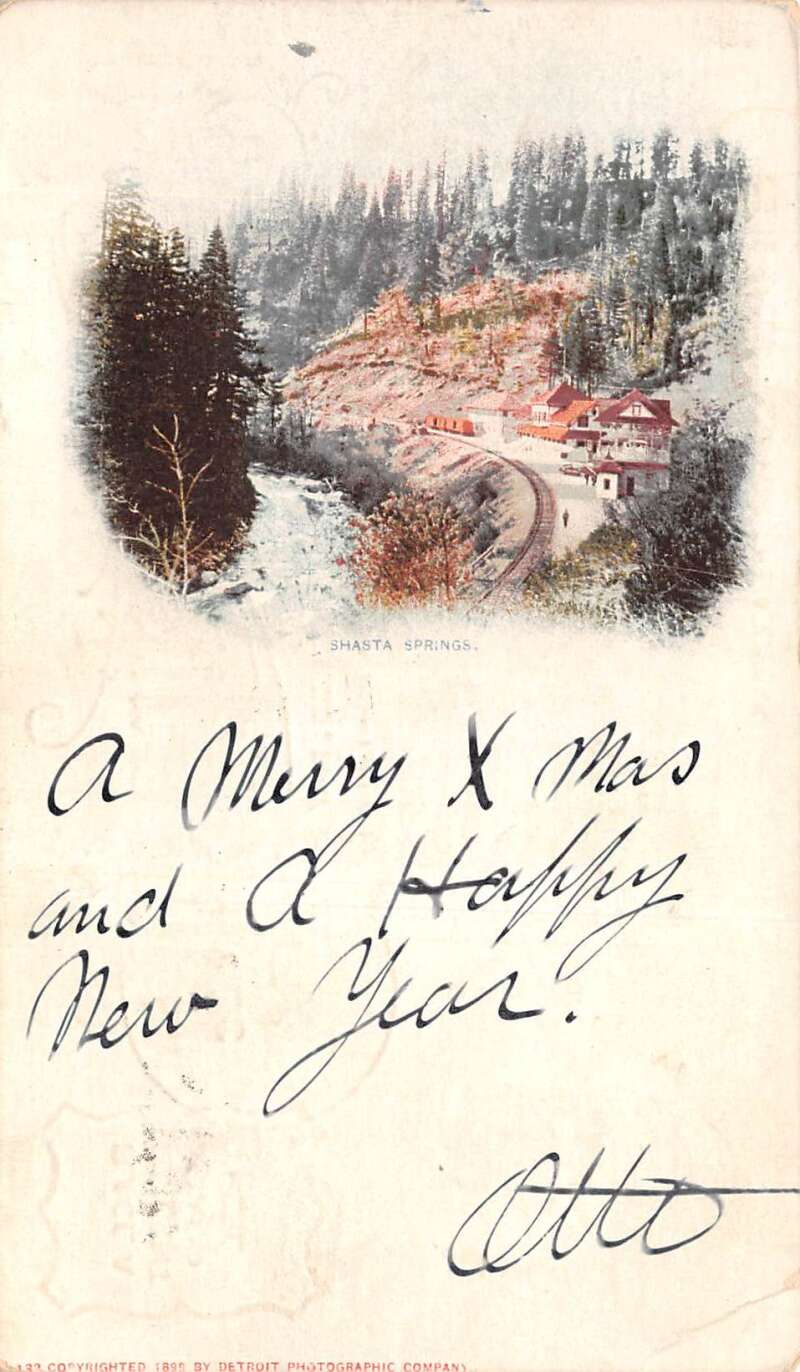 SHASTA SPRINGS.
A Merry X Mas
and A Happy
New Year.
Otto
132 COPYRIGHTED 1899 BY DETROIT PHOTOGRAPHIC COMPANY